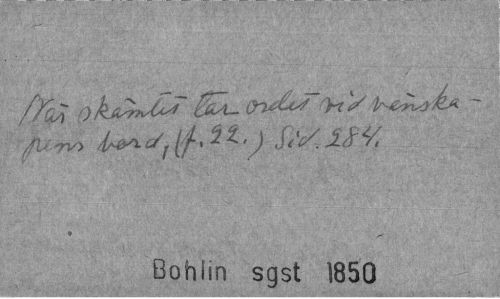 När skämtet tar ordet vid vänska-
pens bord, (f. 22.) Sid. 284.
Bohlin sgst 1850